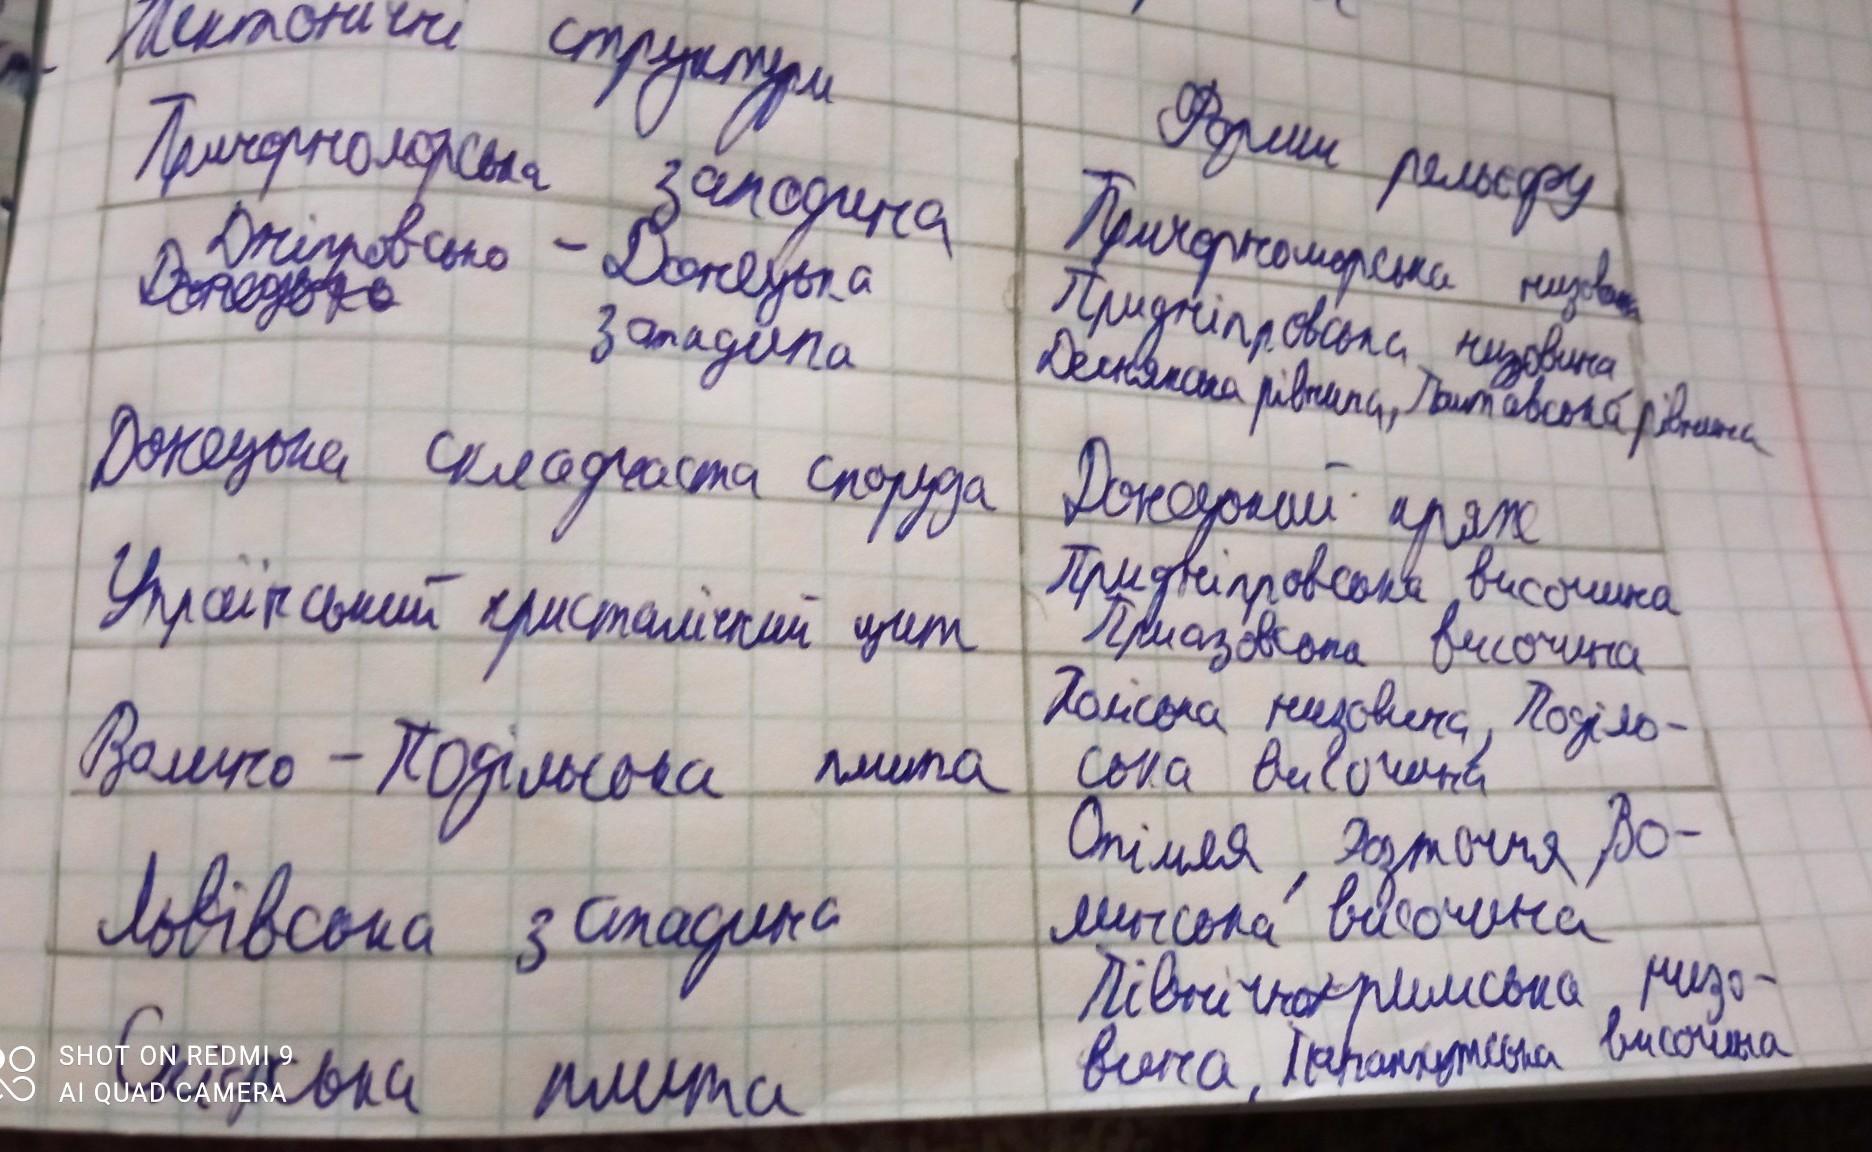 Тектонічні структури
Форми рельєфу
Причорноморська западина
Причорноморська низовина
Дніпровсько - Донецька
западина
Придніпровська низовина
рівнина, Полтавська рівнина
Донецька складчаста споруда
Донецький кряж
Український кристалічний щит
Придніпровська височина
Приазовська височина
Волино - Подільська плита
Поліська низовина, Поділь-
ська височина
Львівська западина
Опілля, Розточчя, Во-
линська височина
Скіфська плита
Північнокримська низо-
вина, Тарханкутська височина
SHOT ON REDMI 9
AI QUAD CAMERA